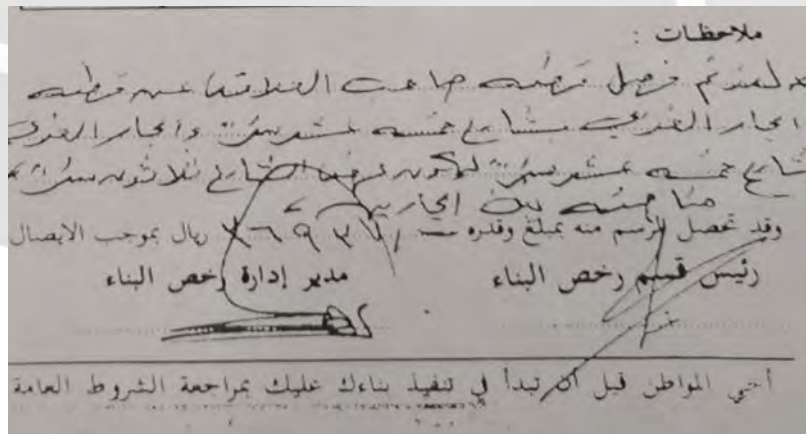 ملاحظات :
لقد تم فصل قطعه صاحب العلاقة عن قطعه
الجار الغربي بشارع خمسه عشر متر والجار الغربي
شارع خمسه عشر متر ليكون عرض الشارع ثلاثون متر
مناصفه بين الجارين
وقد تحصل الرسم منه بمبلغ وقدره ريال بموجب الايصال
رئيس قسم رخص البناء
مدير إدارة رخص البناء
أخي المواطن قبل أن تبدأ في تنفيذ بناءك عليك بمراجعة الشروط العامة